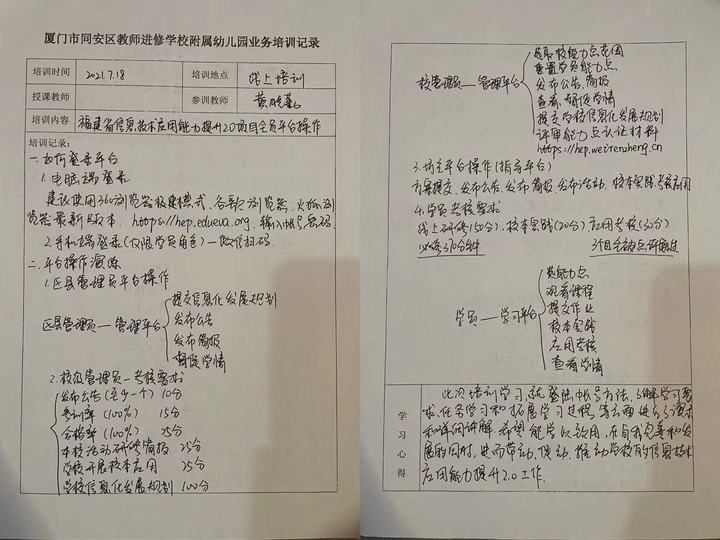 厦门市同安区教师进修学校附属幼儿园业务培训记录
培训时间 2021.7.18 培训地点 线上培训
授课教师 参训教师 黄晓
培训内容 福建省信息技术应用能力提升2.0项目全员平台操作
培训记录:
一.如何登录平台
1.电脑端登录
建议使用360浏览器极速模式、谷歌浏览器、火狐浏
览器最新版本. https://hep.edueva.org. 输入帐号、密码
2.手机端登录(仅限学员角色)—微信扫码.
二.平台操作演练
1.区县管理员平台操作
提交信息化发展规划
区县管理员—管理平台 发布公告
发布简报
督促学情
2.校级管理员-考核要求
发布公告(至少一个) 10分
参训率 (100%) 15分
合格率 (100%) 25分
本校活动研修简报 25分
学校开展校本应用 25分
学校信息化发展规划 100分
选取校能力点范围
重置学员能力点
校管理员—管理平台 发布公告、简报
查看、督促学情
提交学校信息化发展规划
评审能力点认证材料
https://hep.weirenzheng.cn
3.坊主平台操作(指导平台)
方案提交、发布公告、发布简报、发布活动、校本实践、考核应用
4.学员考核要求
线上研修(50分)、校本实践(20分) 应用考核(30分)
必修370分钟 3个自主微点评审通过
选能力点
观看课程
学员—学习平台 提交作业
校本实践
应用考核
查看学情
学习心得
此次培训学习,就登陆帐号方法、讲解学习要
求、任务学习和拓展学习过程等方面进行了要求
和详细讲解.希望能学以致用,在自我完善和发
展的同时,进而带动、促动、推动学校的信息技术
应用能力提升2.0工作.